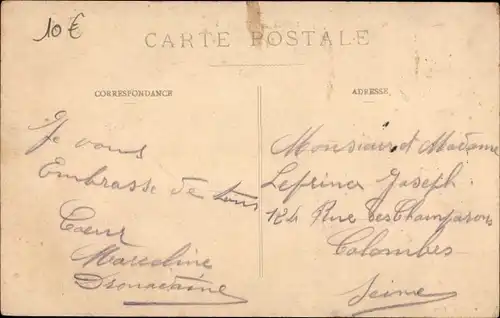 10 €
CARTE POSTALE
CORRESPONDANCE
ADRESSE
Je vous
Embrasse de tous
Coeur
Marceline
Monsieur et Madame
Joseph
124 Rue des Champarons
Colombes
Seine